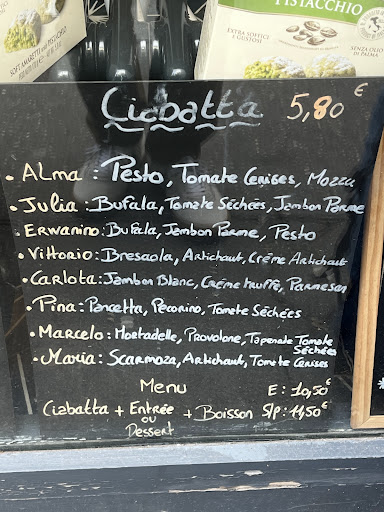 PISTACCHIO
EXTRA SOFFICI
E GUSTOSI
SENZA OLIO
DI PALMA
SOFT AMARETTI WITH PISTACHIO
Ciabatta 5,80€
• ALma : Pesto, Tomate Cerises, Mozza
• Julia : Bufala, Tomate Séchées, Jambon Parme
• Erwanino : Bufala, Jambon Parme, Pesto
• Vittorio : Bresaola, Artichaut, Crème Artichaut
• Carlota : Jambon Blanc, Crème truffe, Parmesan
• Pina : Pancetta, Pecorino, Tomate Séchées
• Marcelo : Mortadelle, Provolone, Tapenade Tomate
Séchées
• Maria : Scarmoza, Artichaut, Tomate Cerises
Menu E : 10,50€
Ciabatta + Entrée + Boisson S/P : 11,50€
ou
Dessert